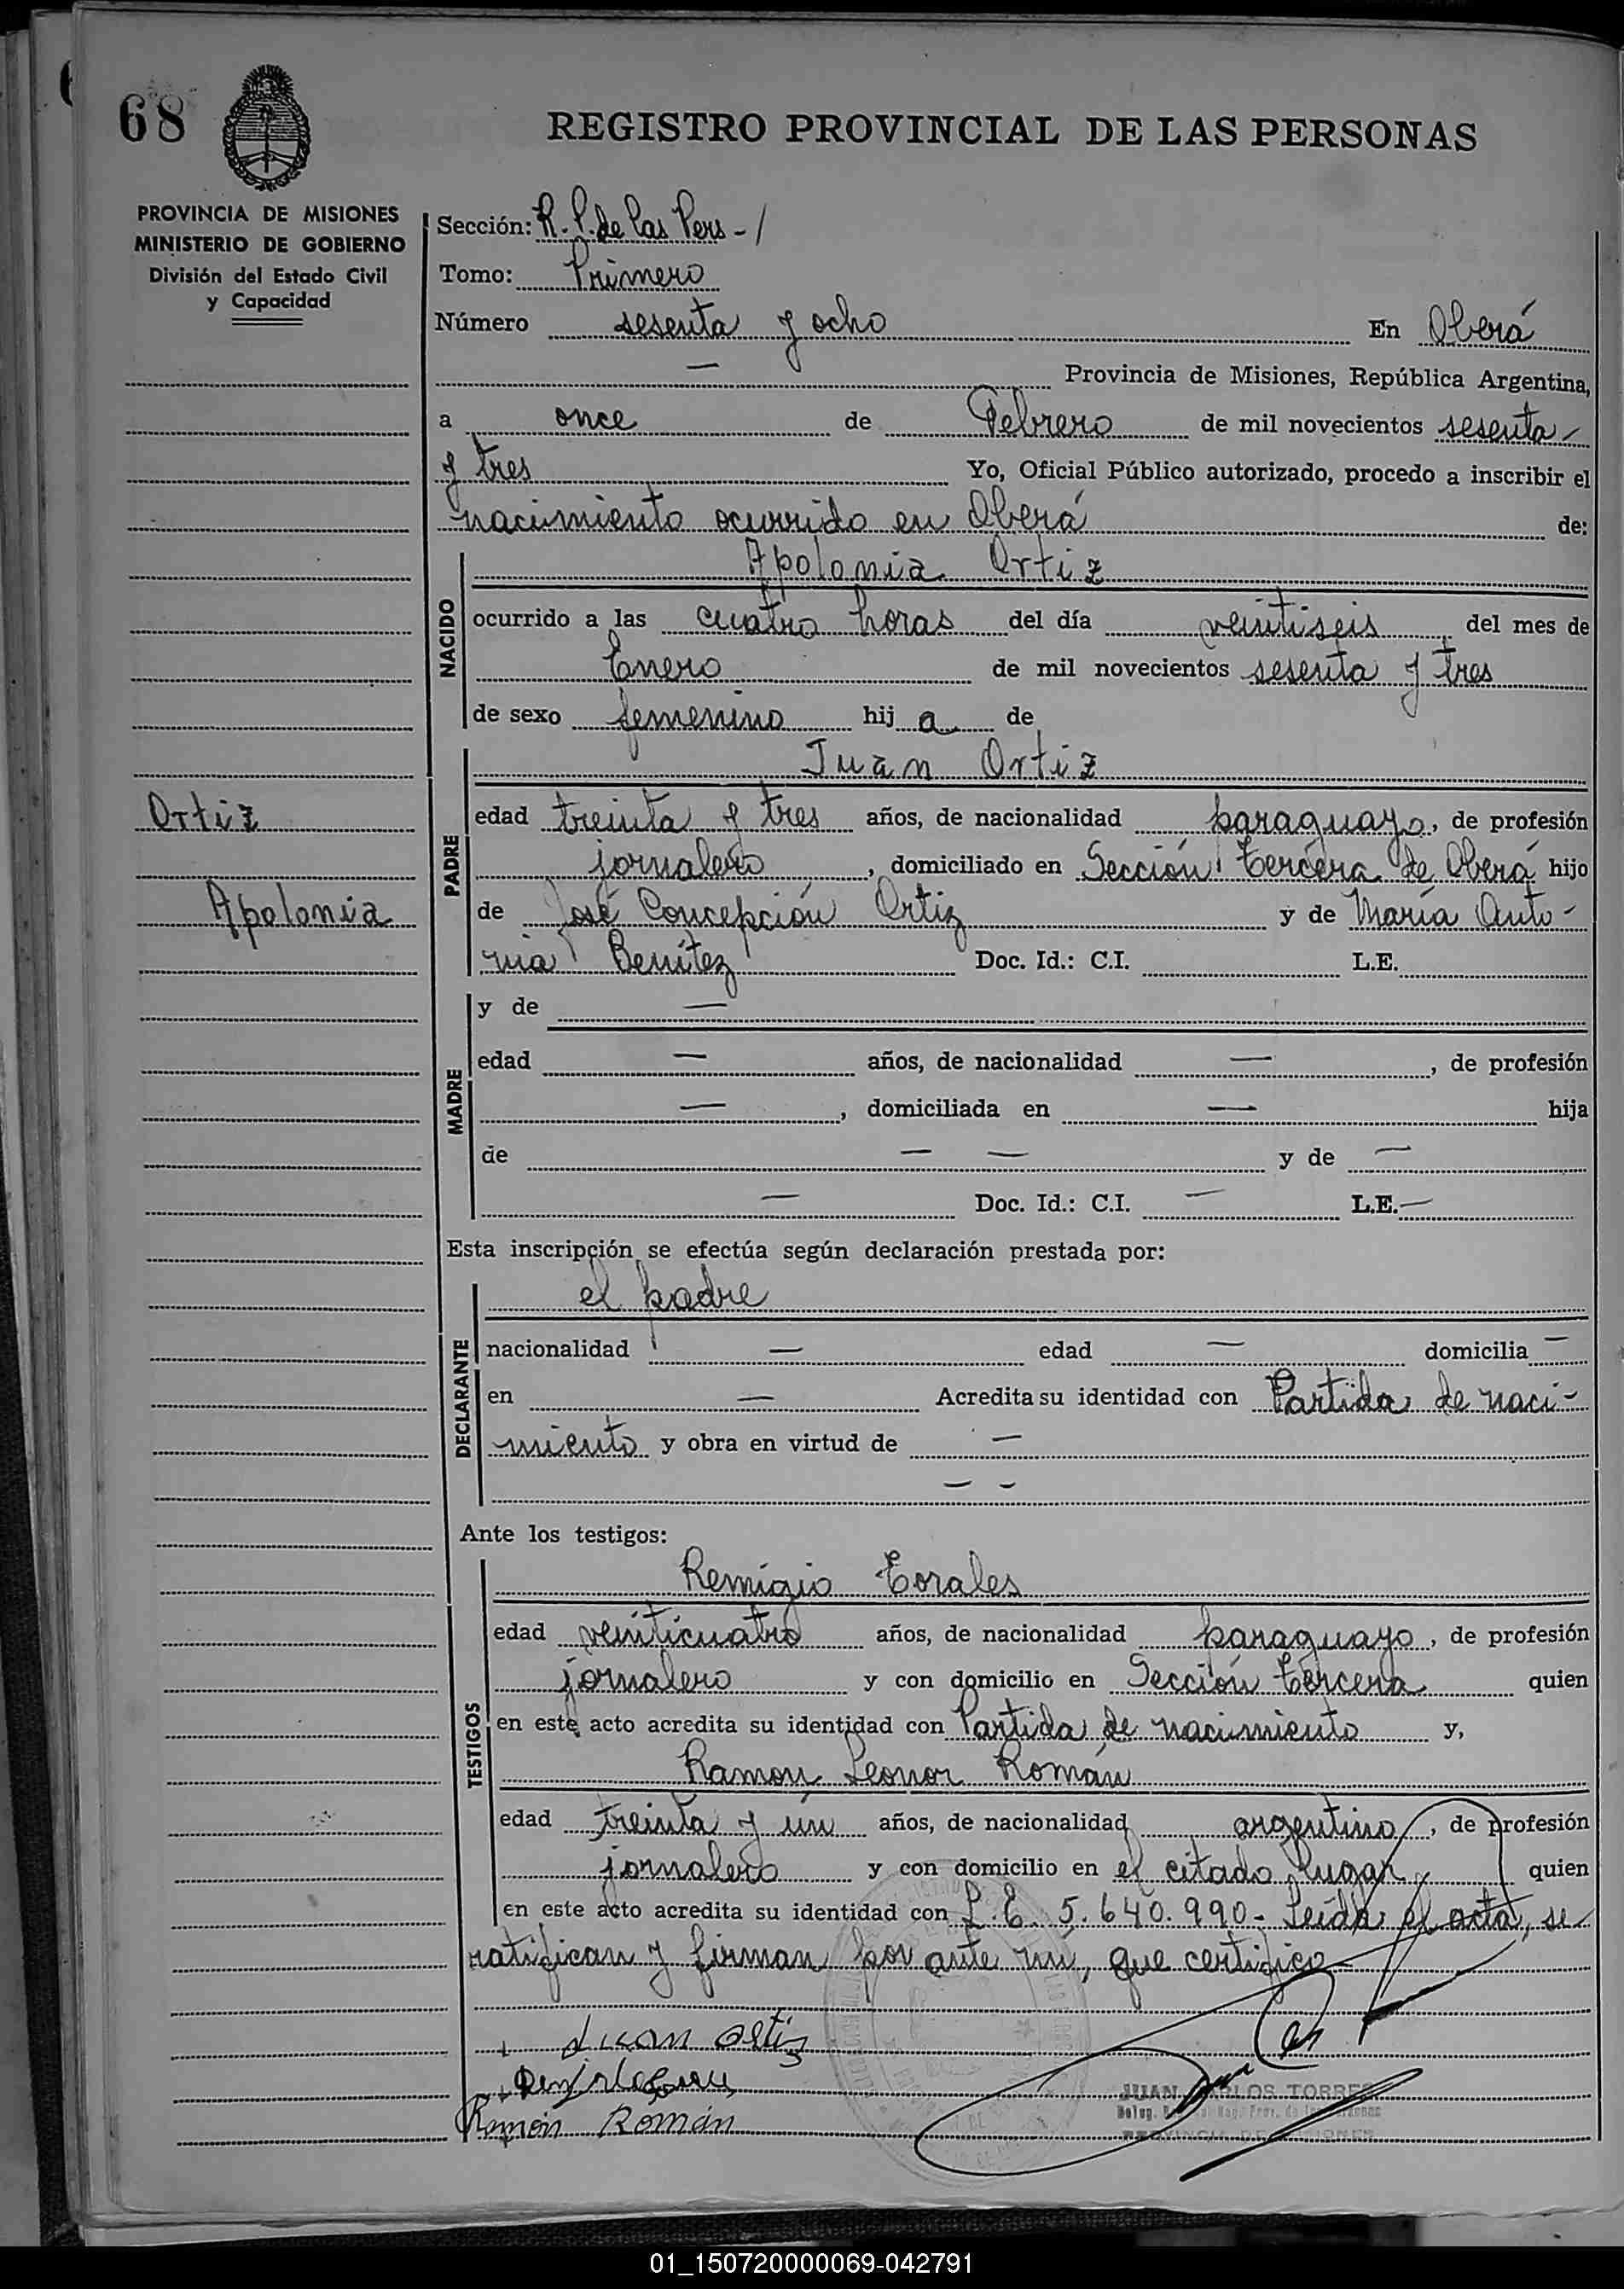 68
REGISTRO PROVINCIAL DE LAS PERSONAS
PROVINCIA DE MISIONES
MINISTERIO DE GOBIERNO
División del Estado Civil
y Capacidad
Sección: R. P. de las Pers - /
Tomo: Primero
Número sesenta y ocho En Oberá
— Provincia de Misiones, República Argentina,
a once de Febrero de mil novecientos sesenta
y tres Yo, Oficial Público autorizado, procedo a inscribir el
nacimiento ocurrido en Oberá de:
NACIDO
Apolonia Ortiz
ocurrido a las cuatro horas del día veintiseis del mes de
Enero de mil novecientos sesenta y tres
de sexo femenino hij a de
PADRE
Juan Ortiz
Ortiz
edad treinta y tres años, de nacionalidad paraguayo, de profesión
jornalero, domiciliado en Sección tercera de Oberá hijo
Apolonia
de José Concepción Ortiz y de María Anto-
nia Benítez Doc. Id.: C.I. L.E.
MADRE
y de —
edad — años, de nacionalidad —, de profesión
—, domiciliada en — hija
de — — y de —
— Doc. Id.: C.I. — L.E. —
Esta inscripción se efectúa según declaración prestada por:
DECLARANTE
el padre
nacionalidad — edad — domicilia —
en — Acredita su identidad con Partida de naci-
miento y obra en virtud de —
— —
Ante los testigos:
TESTIGOS
Remigio Corales
edad veinticuatro años, de nacionalidad paraguayo, de profesión
jornalero y con domicilio en Sección tercera quien
en este acto acredita su identidad con Partida de nacimiento y,
Ramon Leonor Román
edad treinta y ún años, de nacionalidad argentino, de profesión
jornalero y con domicilio en el citado lugar quien
en este acto acredita su identidad con L. E. 5.640.990 - Leída el acta, se
ratifican y firman por ante mí, que certifico
Juan Ortiz
Ramón Román
JUAN CARLOS TORRES
PROVINCIA DE MISIONES
01_150720000069-042791